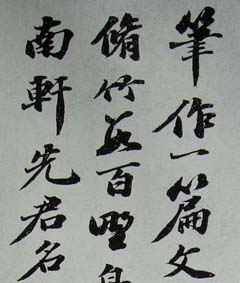 筆作一篇文
脩竹數百野
南軒先君名